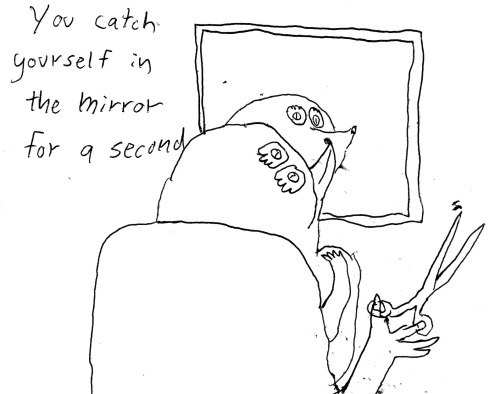 You catch
yourself in
the mirror
for a second